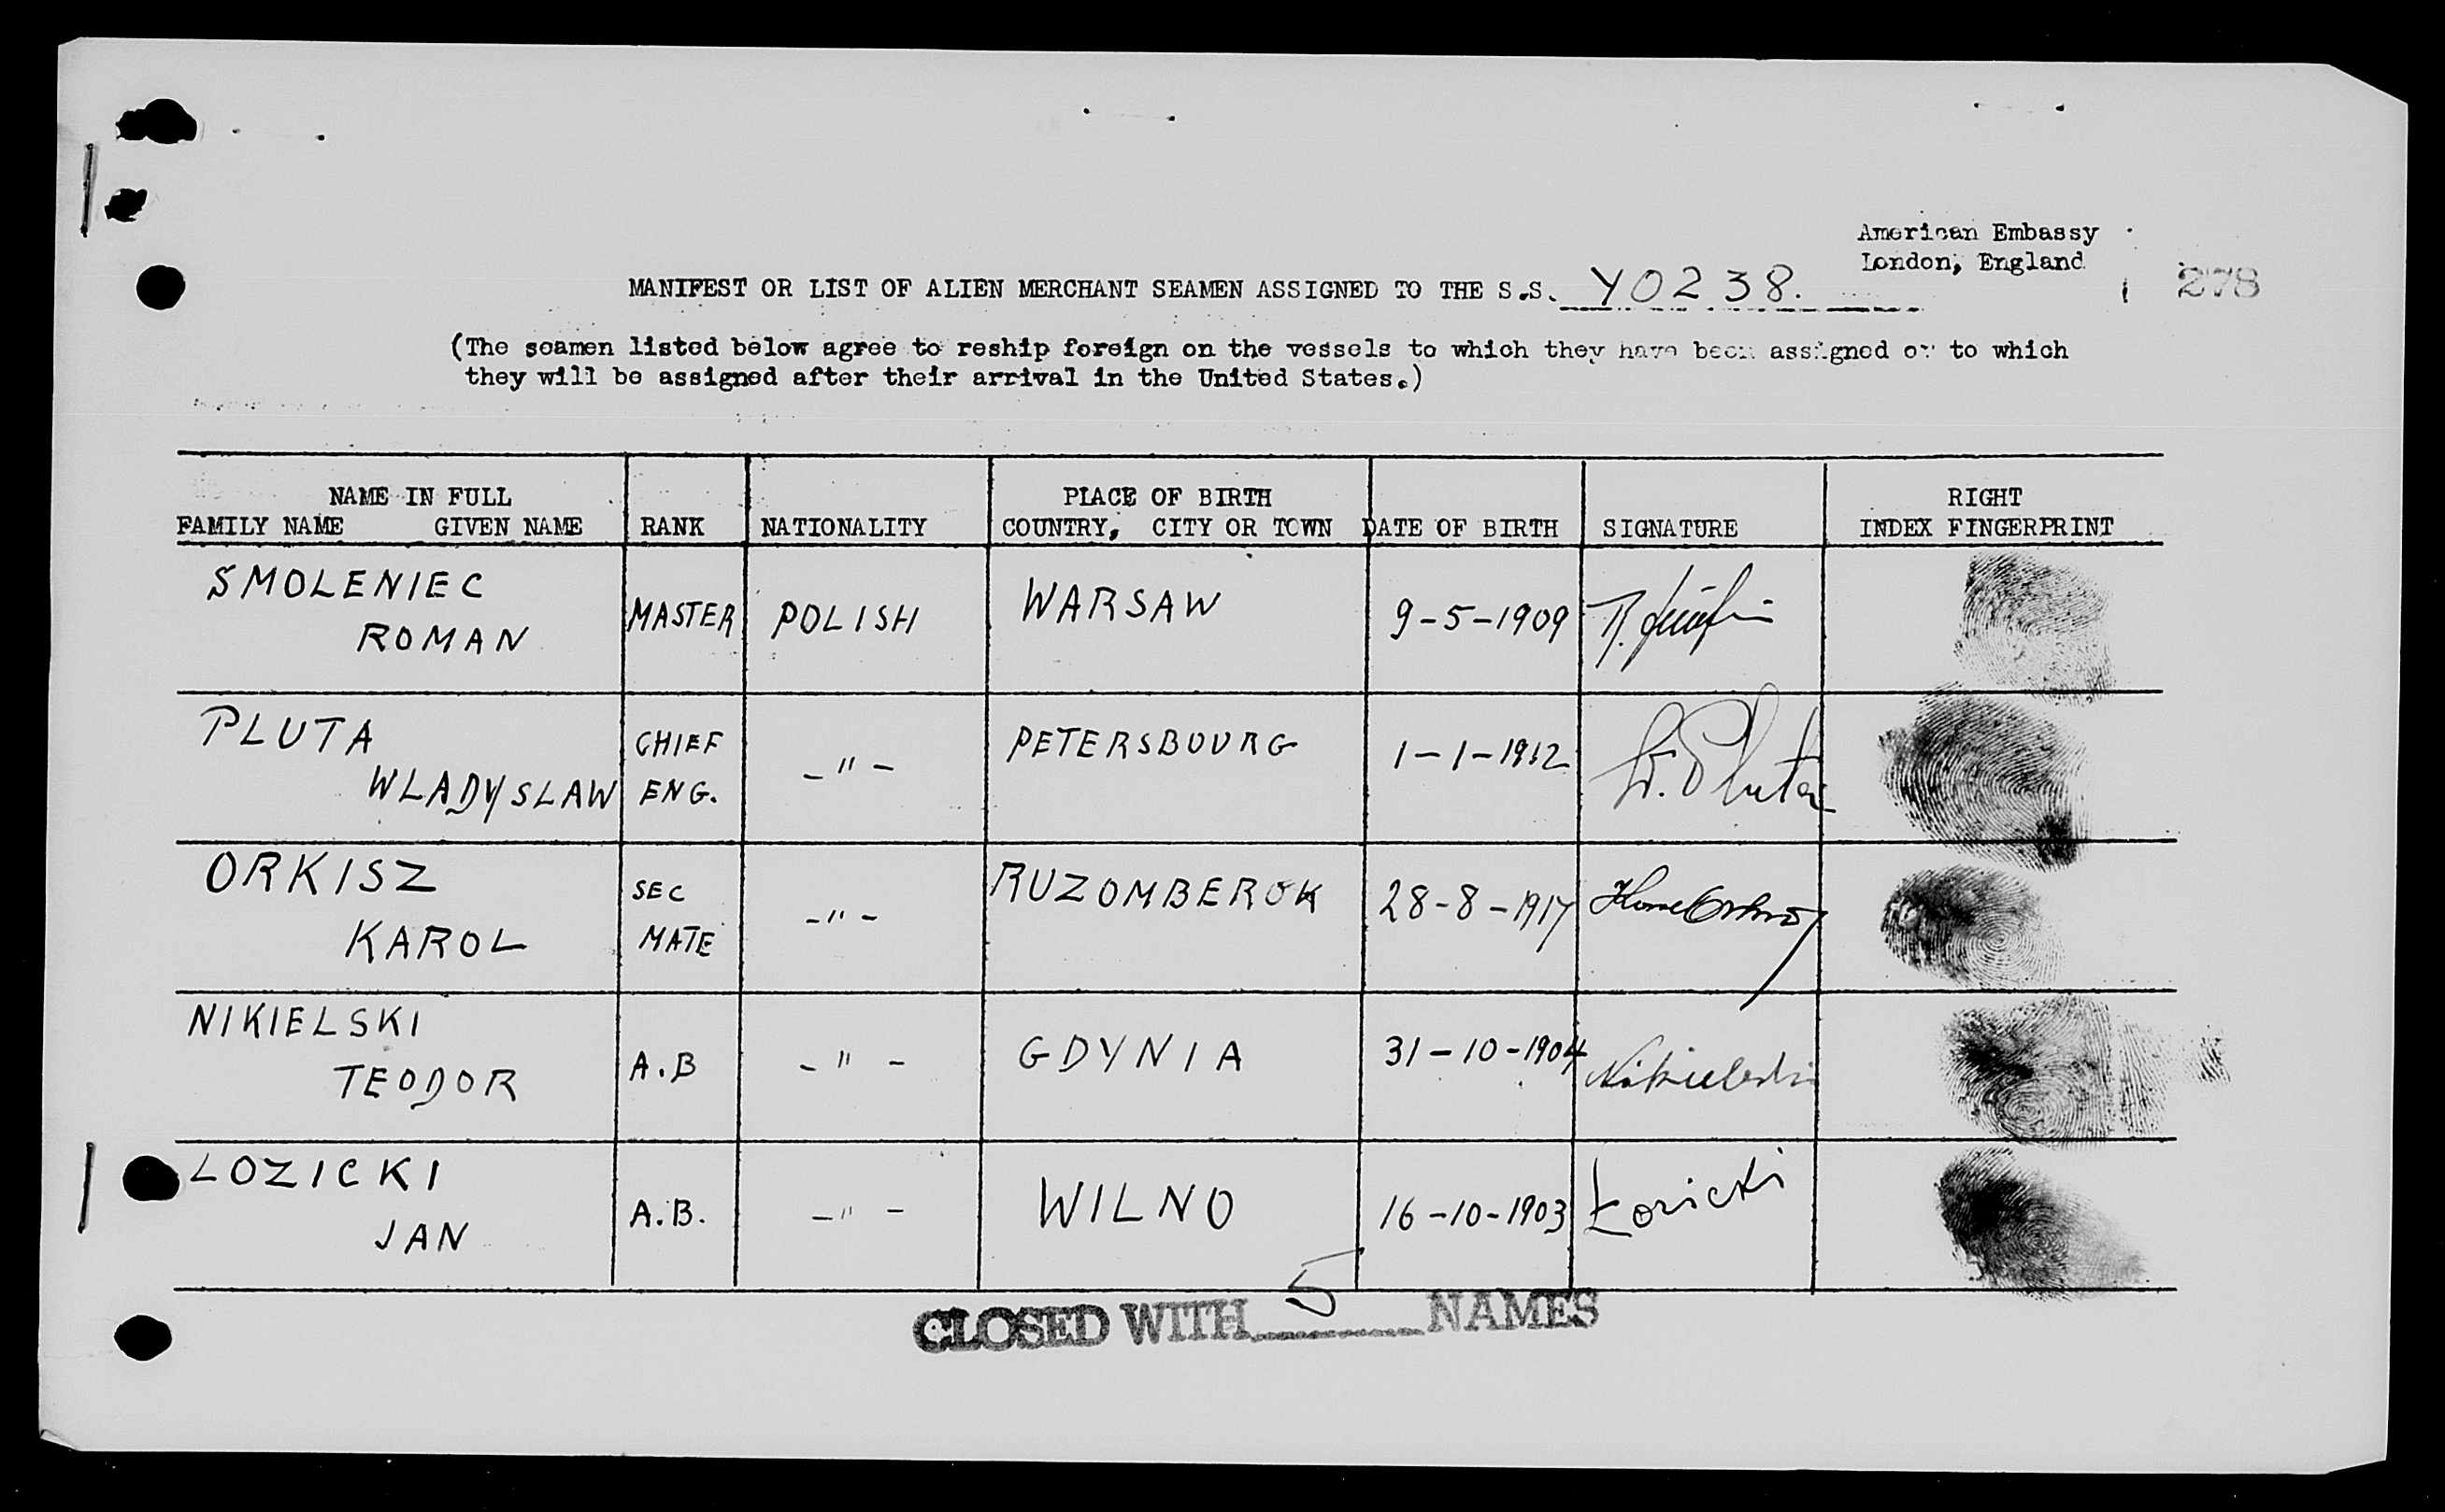 American Embassy
London, England
278
MANIFEST OR LIST OF ALIEN MERCHANT SEAMEN ASSIGNED TO THE S.S. YO238.
(The seamen listed below agree to reship foreign on the vessels to which they have been assigned or to which
they will be assigned after their arrival in the United States.)
NAME IN FULL PLACE OF BIRTH RIGHT
FAMILY NAME GIVEN NAME RANK NATIONALITY COUNTRY, CITY OR TOWN DATE OF BIRTH SIGNATURE INDEX FINGERPRINT
SMOLENIEC
ROMAN MASTER POLISH WARSAW 9-5-1909 R.
PLUTA
WLADYSLAW CHIEF
ENG. -"- PETERSBOURG 1-1-1912 W. Pluta
ORKISZ
KAROL SEC
MATE -"- RUZOMBEROK 28-8-1917
NIKIELSKI
TEODOR A.B -"- GDYNIA 31-10-1904 Nikielski
LOZICKI
JAN A.B. -"- WILNO 16-10-1903 Łozicki
CLOSED WITH 5 NAMES